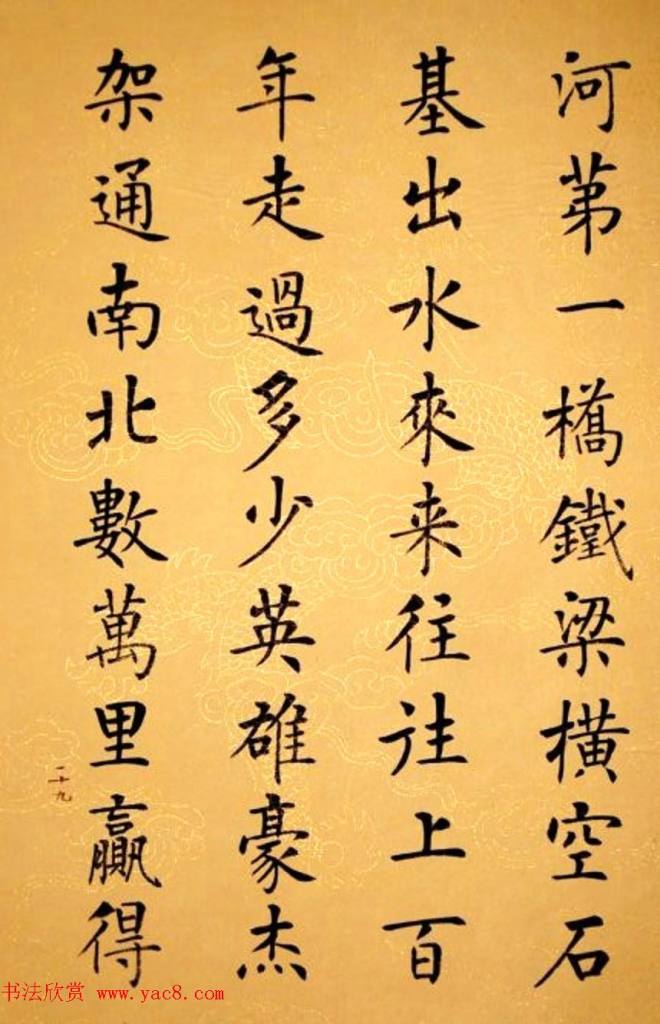 河苐一橋鐵梁橫空石
基出水來来往往上百
年走過多少英雄豪杰
架通南北數萬里贏得
二十九
书法欣赏 www.yac8.com